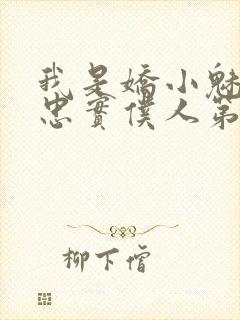 我是嬌小魅
忠實僕人第
柳下僧